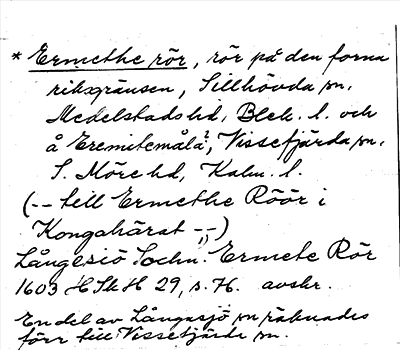 * Ermethe rör, rör på den forna
riksgränsen, Sillhövda sn.
Medelstads hd, Blek. l. och
å Eremitemåla?, Vissefjärda sn.
S. Möre hd, Kalm. l.
(-- till Ermethe Röör i
Kongahärat --)
Långesiö Sochn: Ermete Rör
1603 HSkH 29, s. 76. avskr.
En del av Långasjö sn räknades
förr till Vissefjärda sn.